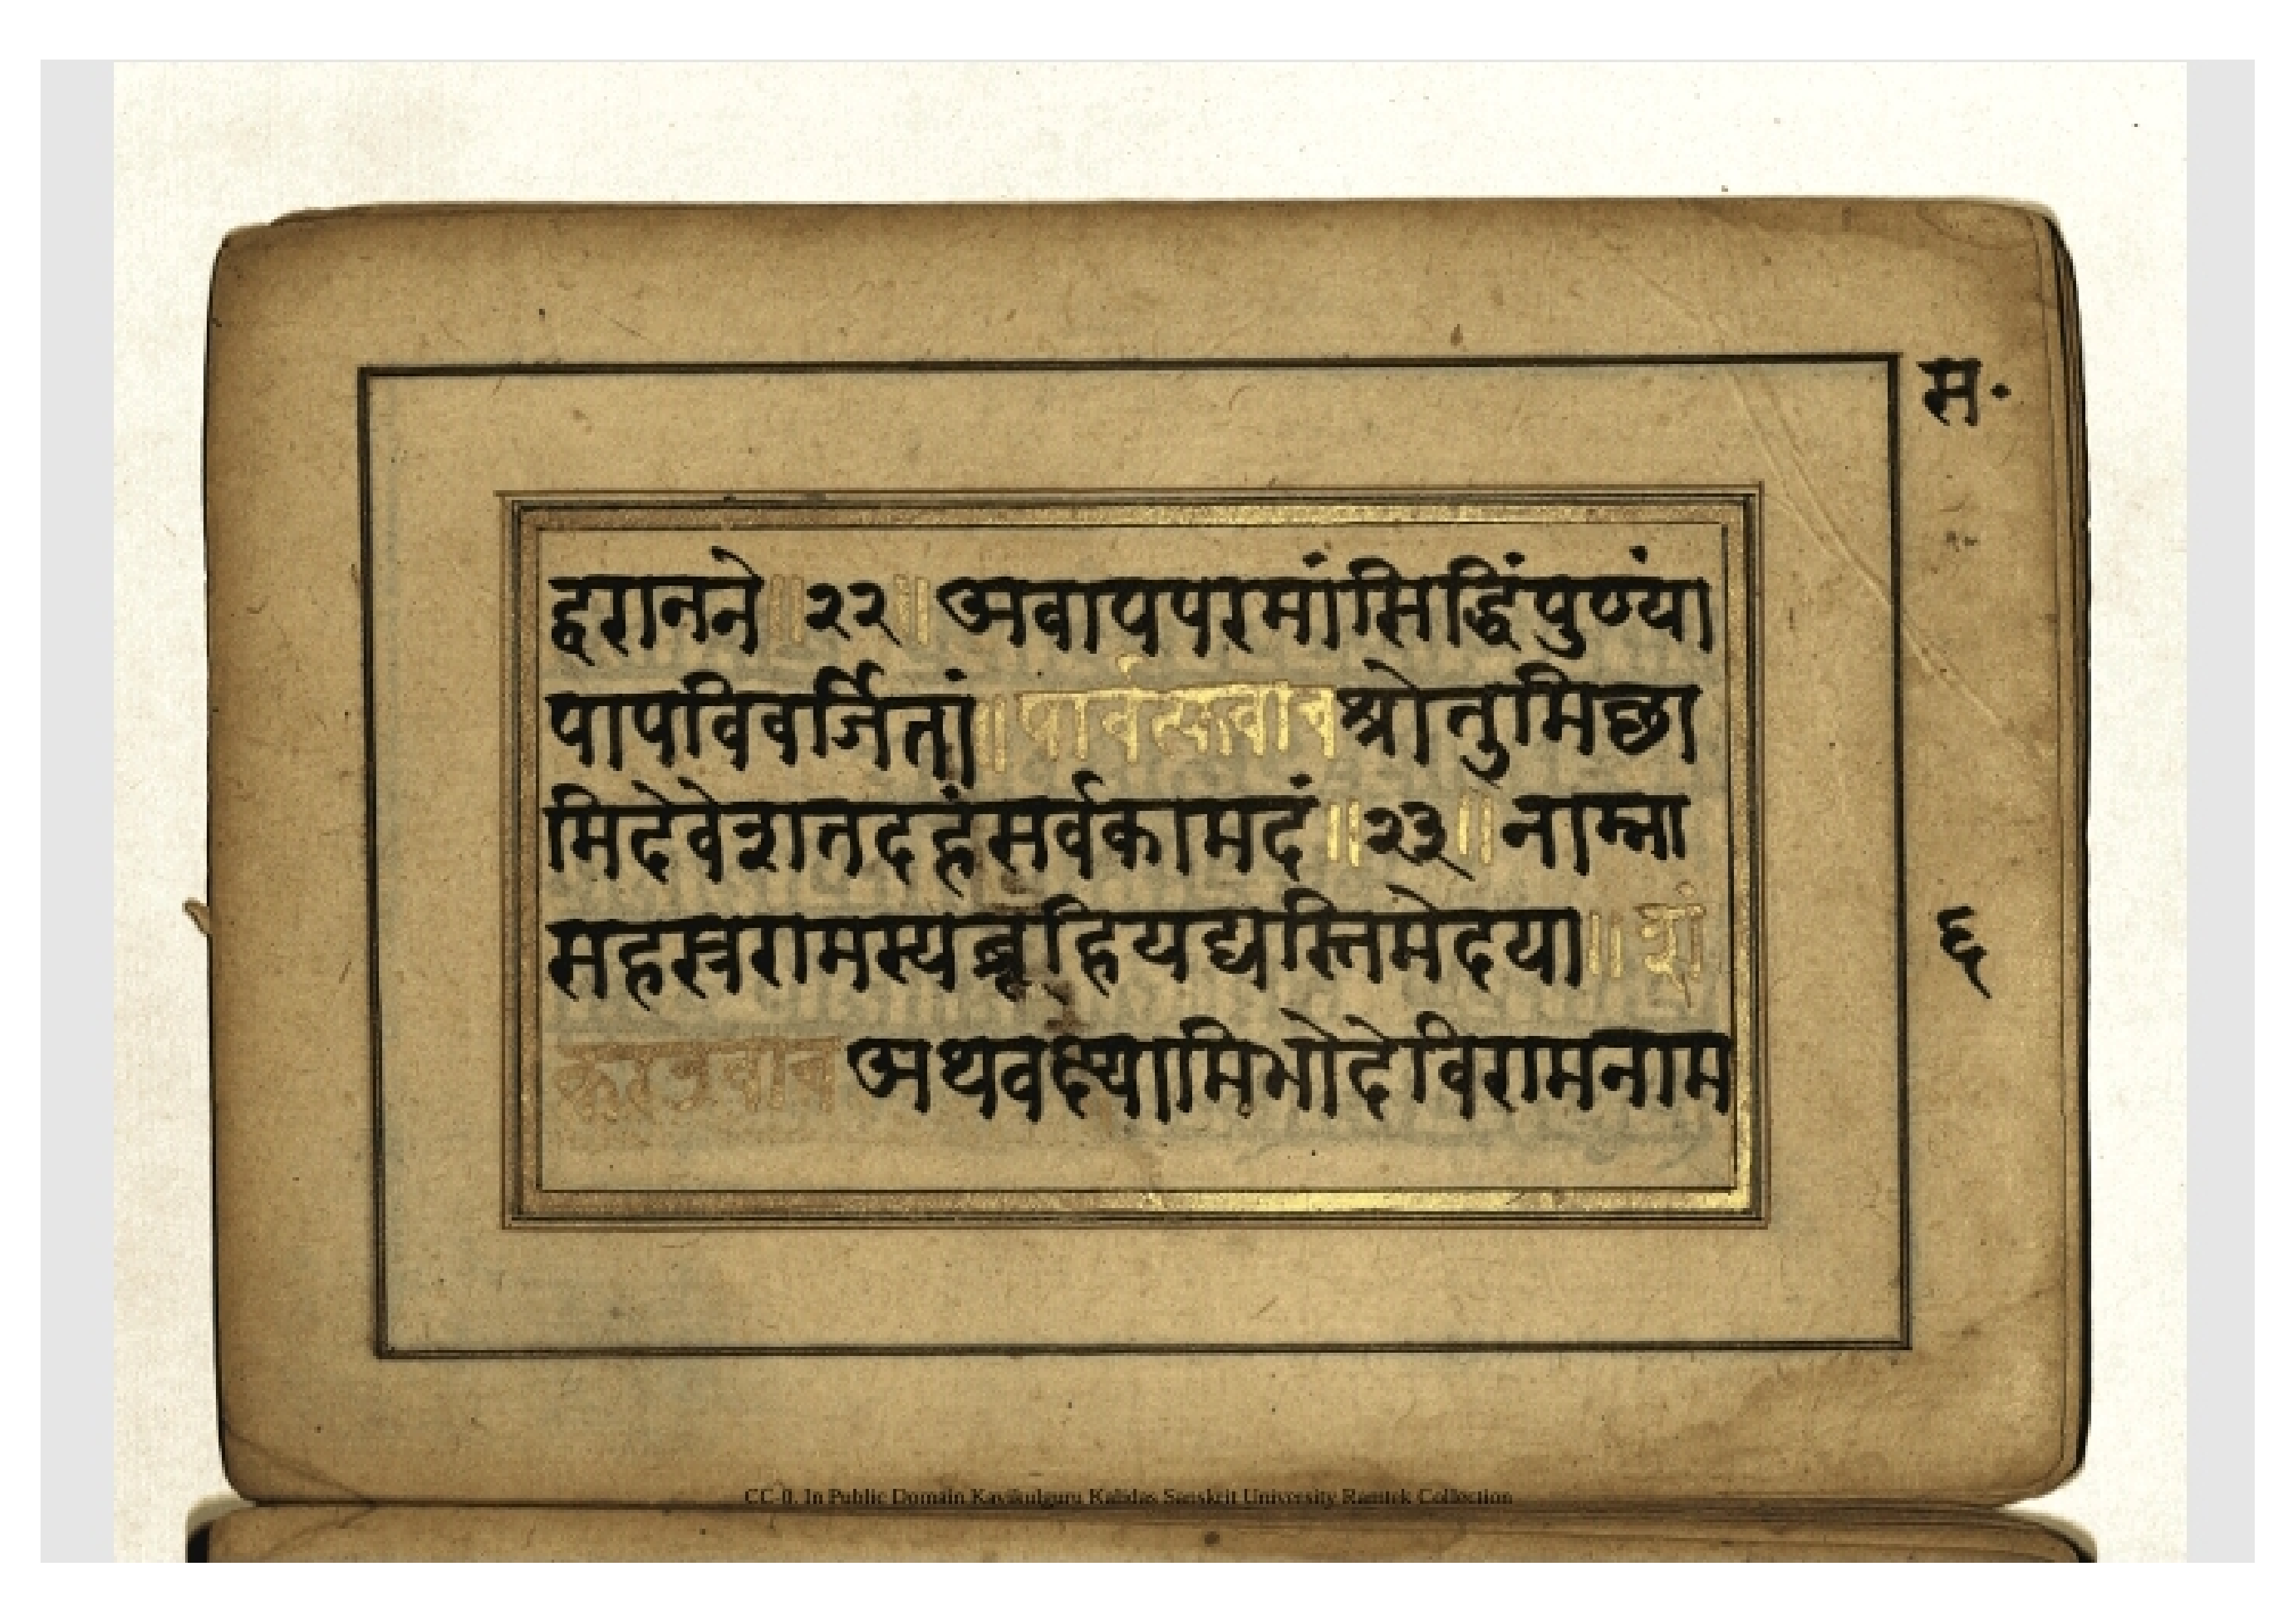 द्वरानने॥२२॥अवापपरमांसिद्धिंपुण्यां
पापविवर्जितां॥पार्वत्युवाचश्रोतुमिछा
मिदेवेशतदहंसर्वकामदं॥२३॥नाम्नां
सहस्त्ररामस्यब्रूहियद्यस्तिमेदया॥शं
करउवाचअथवक्ष्यामिभोदेविरामनाम
स॰
६
CC-0. In Public Domain Kavikulguru Kalidas Sanskrit University Ramtek Collection